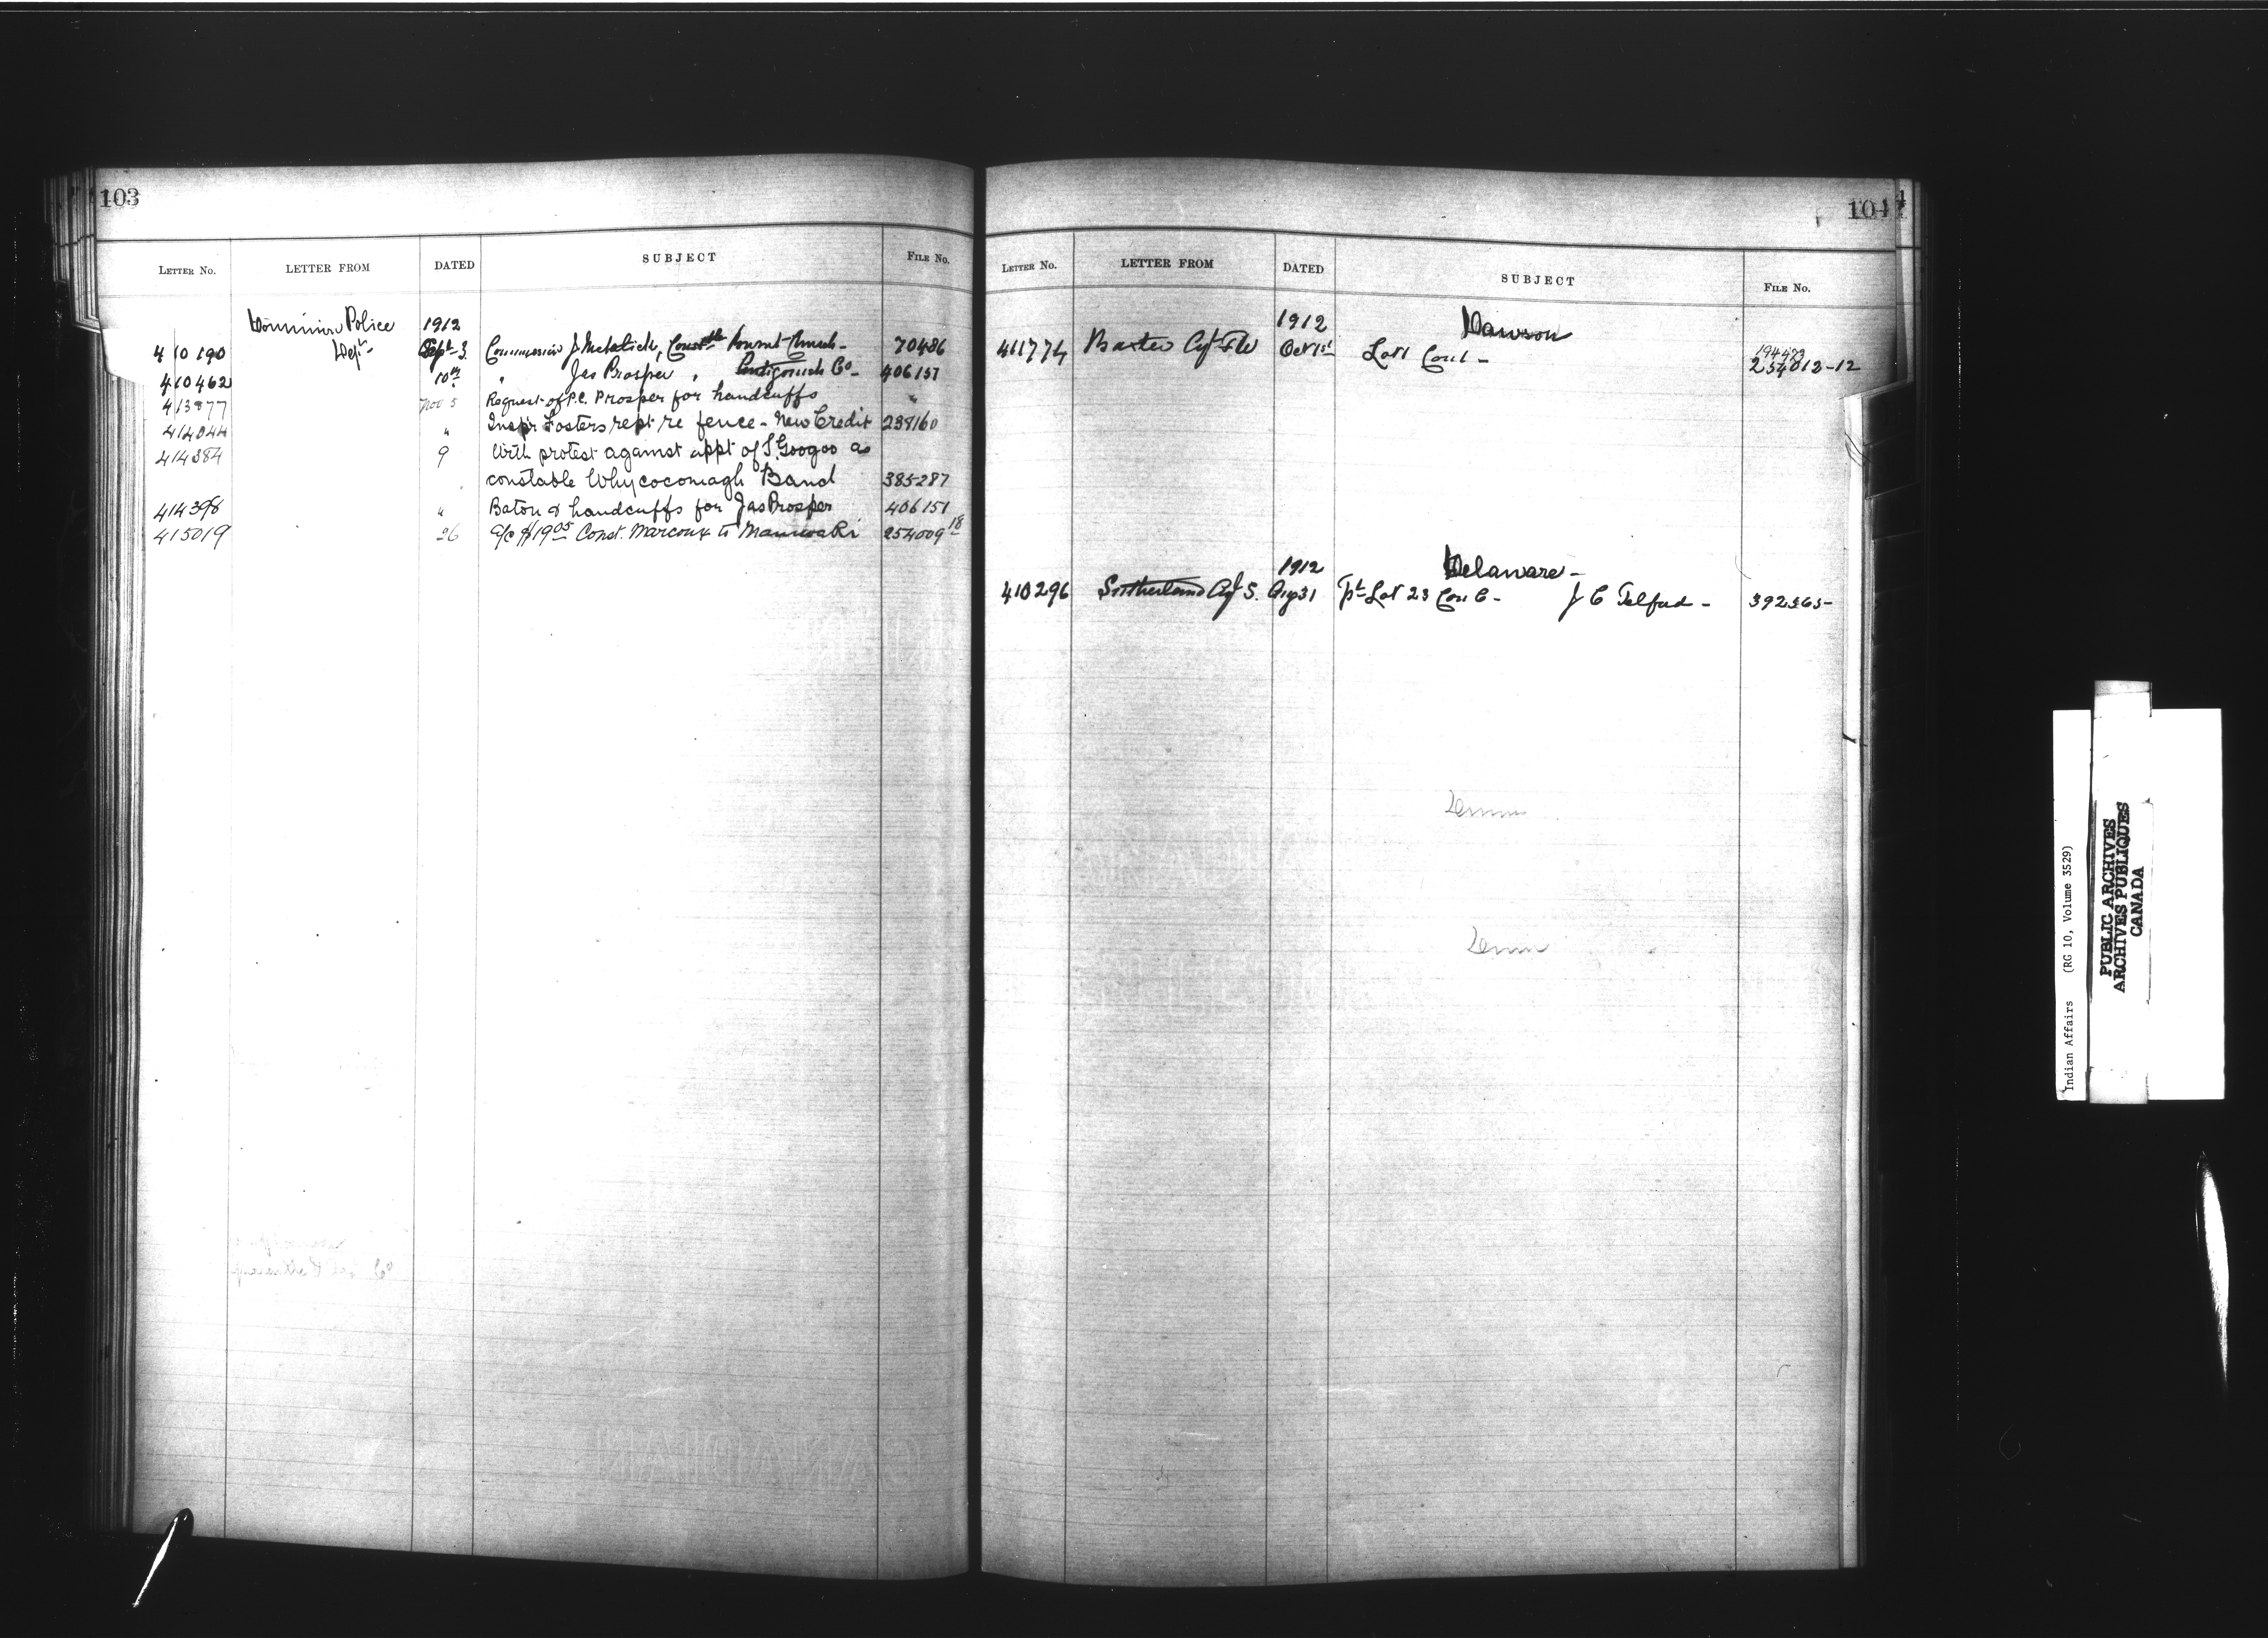 103
LETTER NO. LETTER FROM DATED SUBJECT FILE No.
Dominion Police 1912
Dept-
410190 Sept-3 Commission J McKitrick, Constble Church- 70486
410462 10th " Jas Prosper , Antigonish Co- 406151
413877 Nov 5 Request of P.C. Prosper for handcuffs "
414044 " Insp'r Fosters rept re fence - New Credit 238160
414384 9 With protest against appt of S. Googoo as
constable Whycocomagh Band 385287
414398 " Baton & handcuffs for Jas Prosper 406151
415019 26 a/c $19.05 Const. Marcoux to Maniwaki 254009 18
104
LETTER No. LETTER FROM DATED SUBJECT FILE No.
1912 Dawson
194473
411774 Baxter Agt FW Oct 1st Lot 1 Con 1 - 254012-12
1912 Delaware -
410296 Sutherland Agt S. Aug 31 Pt Lot 23 Con C - J C Telford - 392565-
Indian Affairs (RG 10, Volume 3529)
PUBLIC ARCHIVES
ARCHIVES PUBLIQUES
CANADA